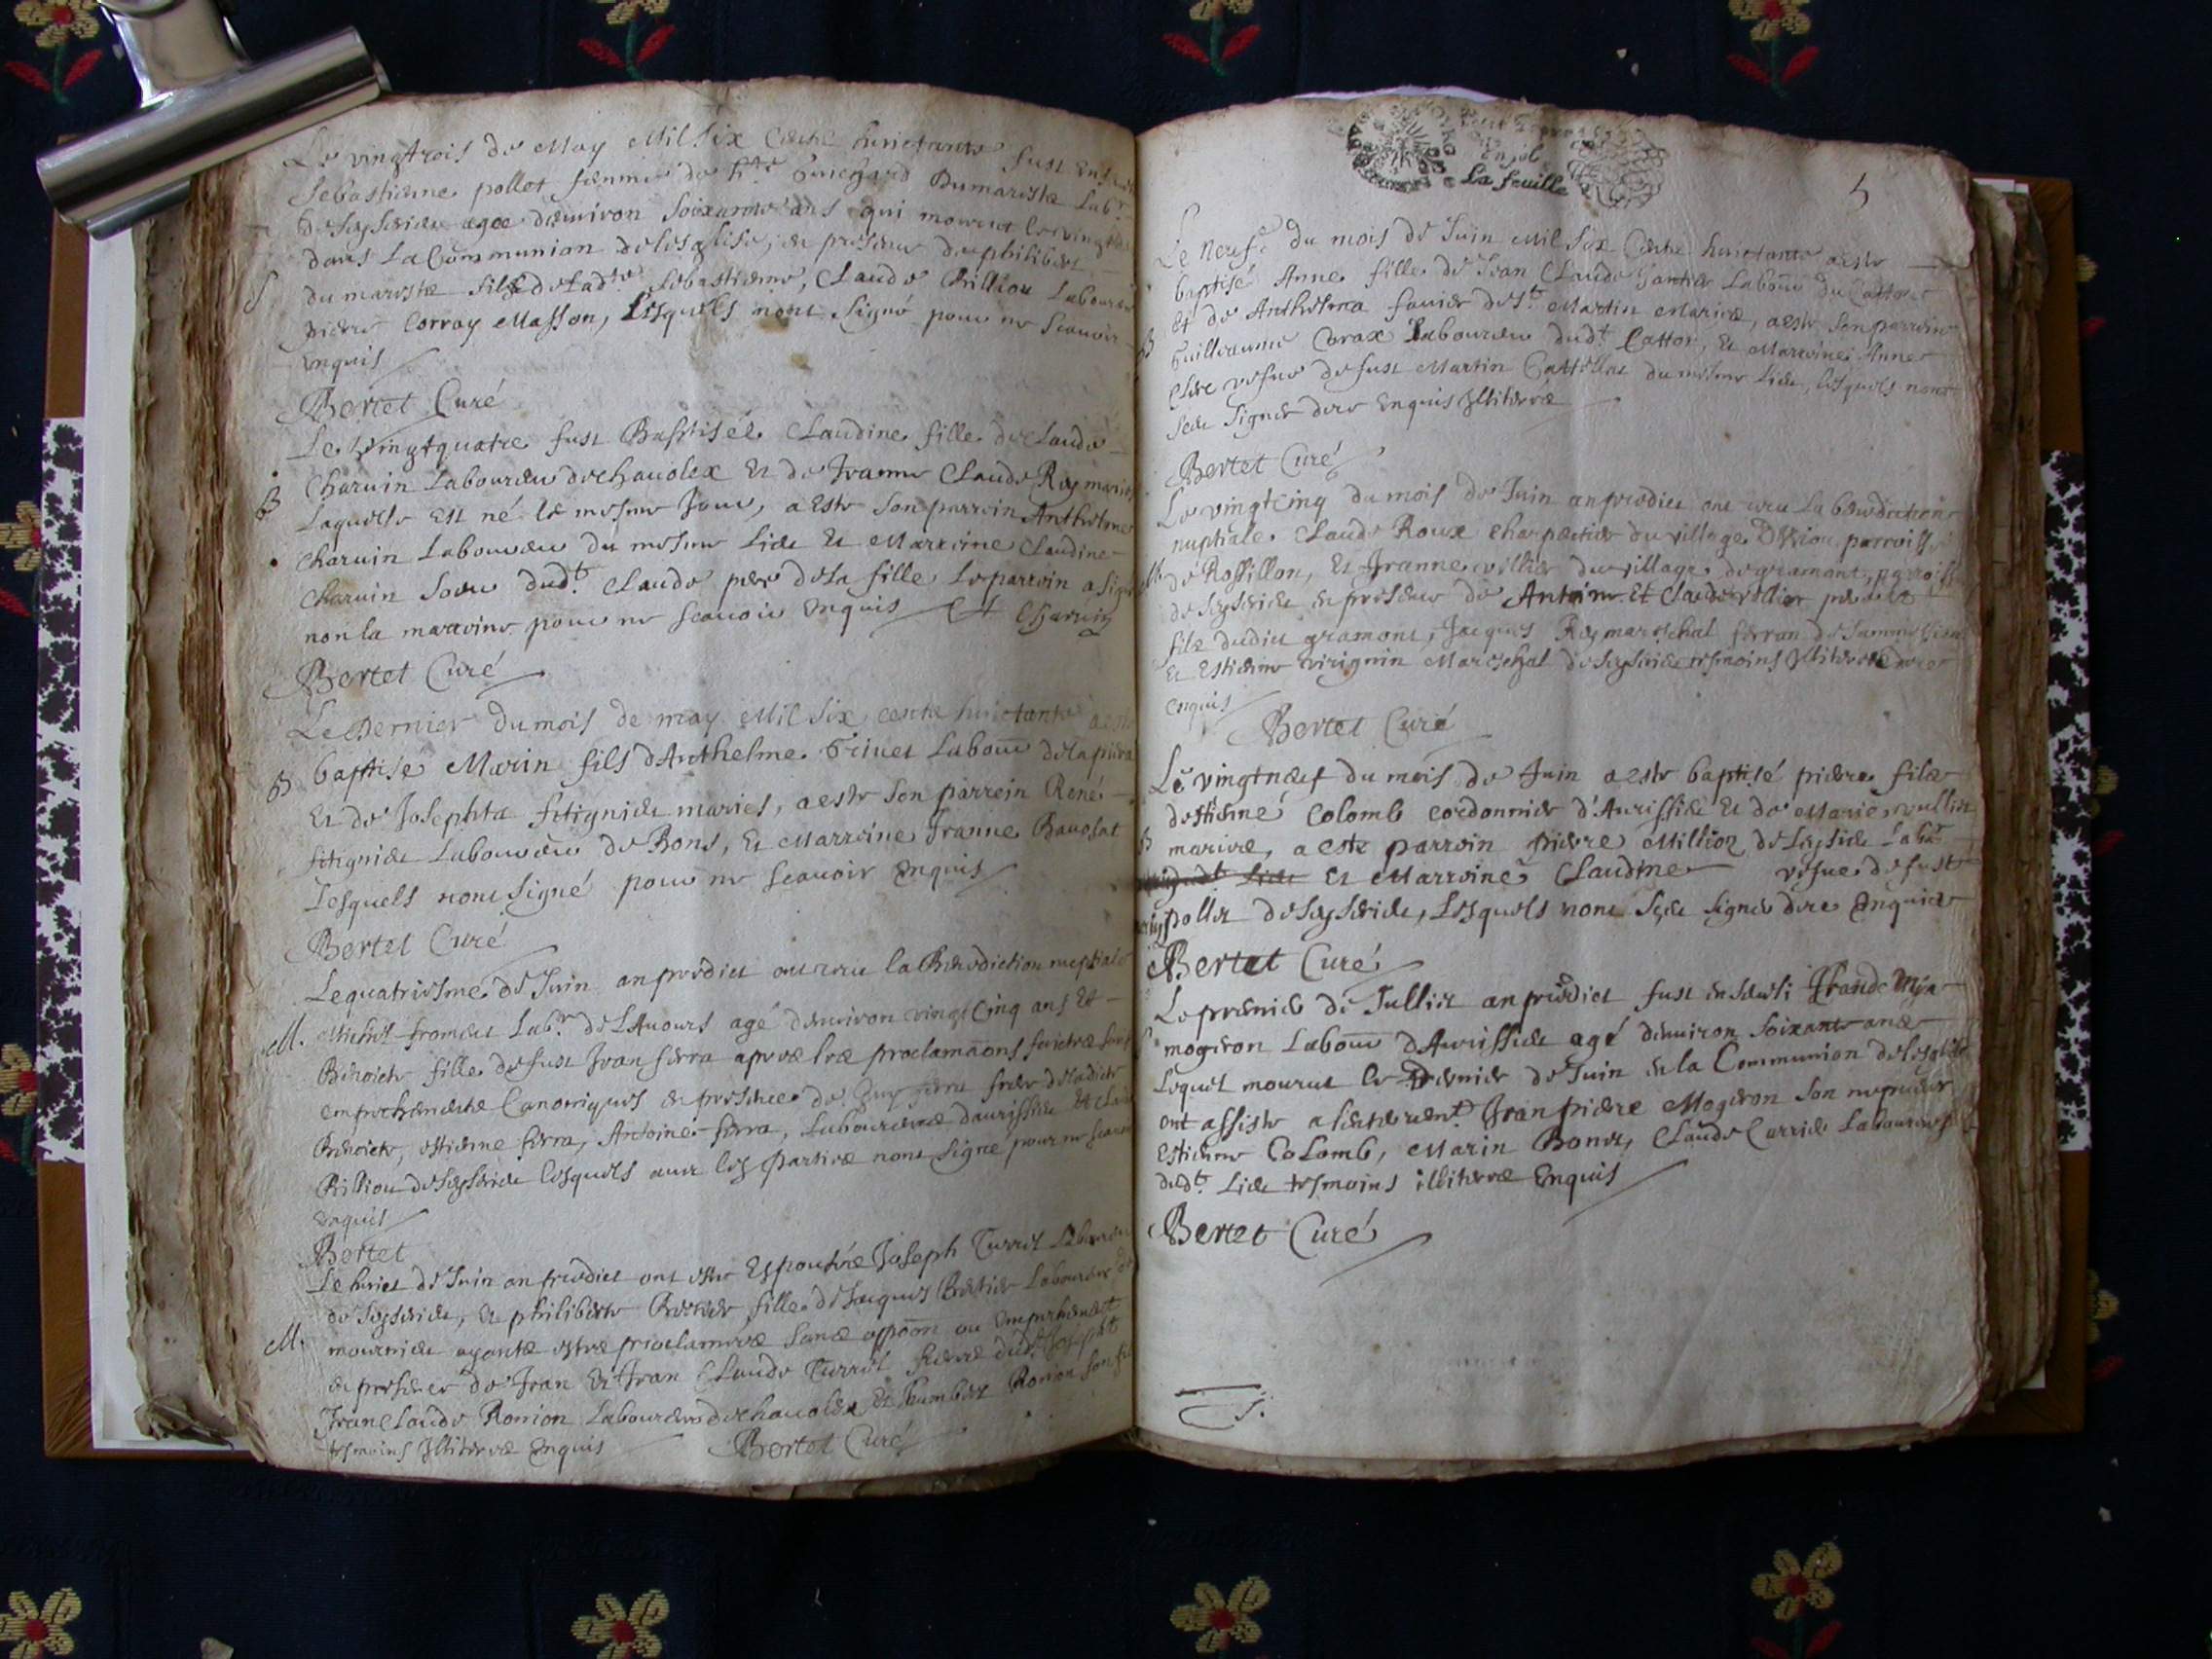 Le vingtrois de May Mil Six Cents huictante fust
Sebastienne pollet femme de Guichard Dumareste Labr.
de Seyserieu agee denviron soixante ans qui mourut le vingt
dans La Communion de lesglise, en presence de philibert
S
du mareste fils de lad.te Sebastienne, Claude Billiou Laboureur
pierre Corray Masson, Lesquels n'ont signé pour ne scavoir
enquis
Bertet Curé
Le vingtquatre fust Baptisée Claudine fille de Claude
B
Charvin Laboureur de chavolex et de Jeanne Claude Rey mariés
Laquelle est né le mesme jour, a este son parrein Anthelme
Charvin Laboureur du mesme Lieu et Marreine Claudine
Charvin soeur dud.t Claude pere de la fille Le parrein a signé
non la marreine pour ne scavoir enquis A Charvin
Bertet Curé
Le Dernier du mois de may Mil Six cents huictante a este
B
baptisé Marin fils d'Anthelme Grinet Labour
Et de Josephta fitignieu mariés, a este son parrein René
fitignieu Laboureur de Bons, Et Marreine Jeanne Bavosat
Lesquels n'ont signé pour ne scavoir enquis
Bertet Curé
Le quatriesme de Juin an predict ont receu la Benediction nuptiale
M.
Michel froment Labr. de Lavours agé denviron vingt Cinq ans et
Benoiete fille de fust Jean serra apres les proclamaons faictes sans
empechements Canoniques en presence de Guy serra frere de ladicte
Benoiete, estienne serra, Antoine serra, Laboureurs daurissieu et Claude
Billiou de Seyserieu lesquels avec les parties n'ont signé pour ne scavoir
enquis
Bertet
Le huict de Juin an predict ont este Espousés Joseph Turrel Laboureur
de Seyserieu, et philiberte Bertier fille de Jacques Bertier Laboureur de
M.
mournieu ayants estes proclamés sans oppoon ou empechement
en presence de Jean et Jean Claude Turrel freres dud.t Joseph
Jean Claude Ronion Laboureur de chavolex et humbert Ronion son fils
tesmoins Illiteres enquis Bertet Curé
La feuille
5
Le Neufe du mois de Juin Mil Six Cents huictante a este
baptisé Anne fille de Jean Claude Jantier Labour du Catton
B
et de Anthelma favier de St. Martin Mariés, a este son parrein
Guillaume Corax Laboureur dud.t Catton, et Marreine Anne
Clere vefve de fust Martin Cattellat du mesme Lieu, lesquels n'ont
sceu signer de ce enquis Illiteres
Bertet Curé
Le vingtcinq du mois de Juin an predict ont receu La benediction
nuptiale Claude Roux charpentier du village parroisse
M.
de Rossillon, Et Jeanne vollier du village de gramont, parroisse
de Seyserieu en presence de Antoine Et Claude vollier pere et
fils dudict gramont, Jacques Rey mareschal
Et Estienne virignin Mareschal de Seyserieu tesmoins Illiteres de ce
enquis
Bertet Curé
Le vingtneuf du mois de Juin a este baptisé pierre fils
destienne Colomb cordonnier d'Aurissieu et de Marie vullin
B
mariés, a este parrein pierre Million de Seysieu Labr.
Lieu et Marreine Claudine vefve de fust
pollet de Seyserieu, Lesquels n'ont sceu signer de ce enquis
Bertet Curé
Le premier de Jullict an predict fust enseveli
S
mogeron Labour D'Aurissieu agé denviron soixante ans
Lequel mourut le Dernier de Juin en la Communion de lesglise
ont assiste a lenterrement Jean pierre Mogeron son nepveu
Estienne Colomb, Marin Bonet, Claude Carrier Laboureurs
dud.t Lieu tesmoins illiteres enquis
Bertet Curé